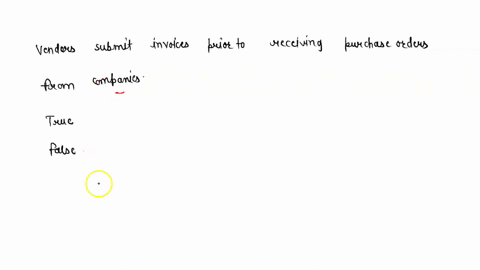 Vendors submit invoices prior to receiving purchase orders
from companies.
True
False